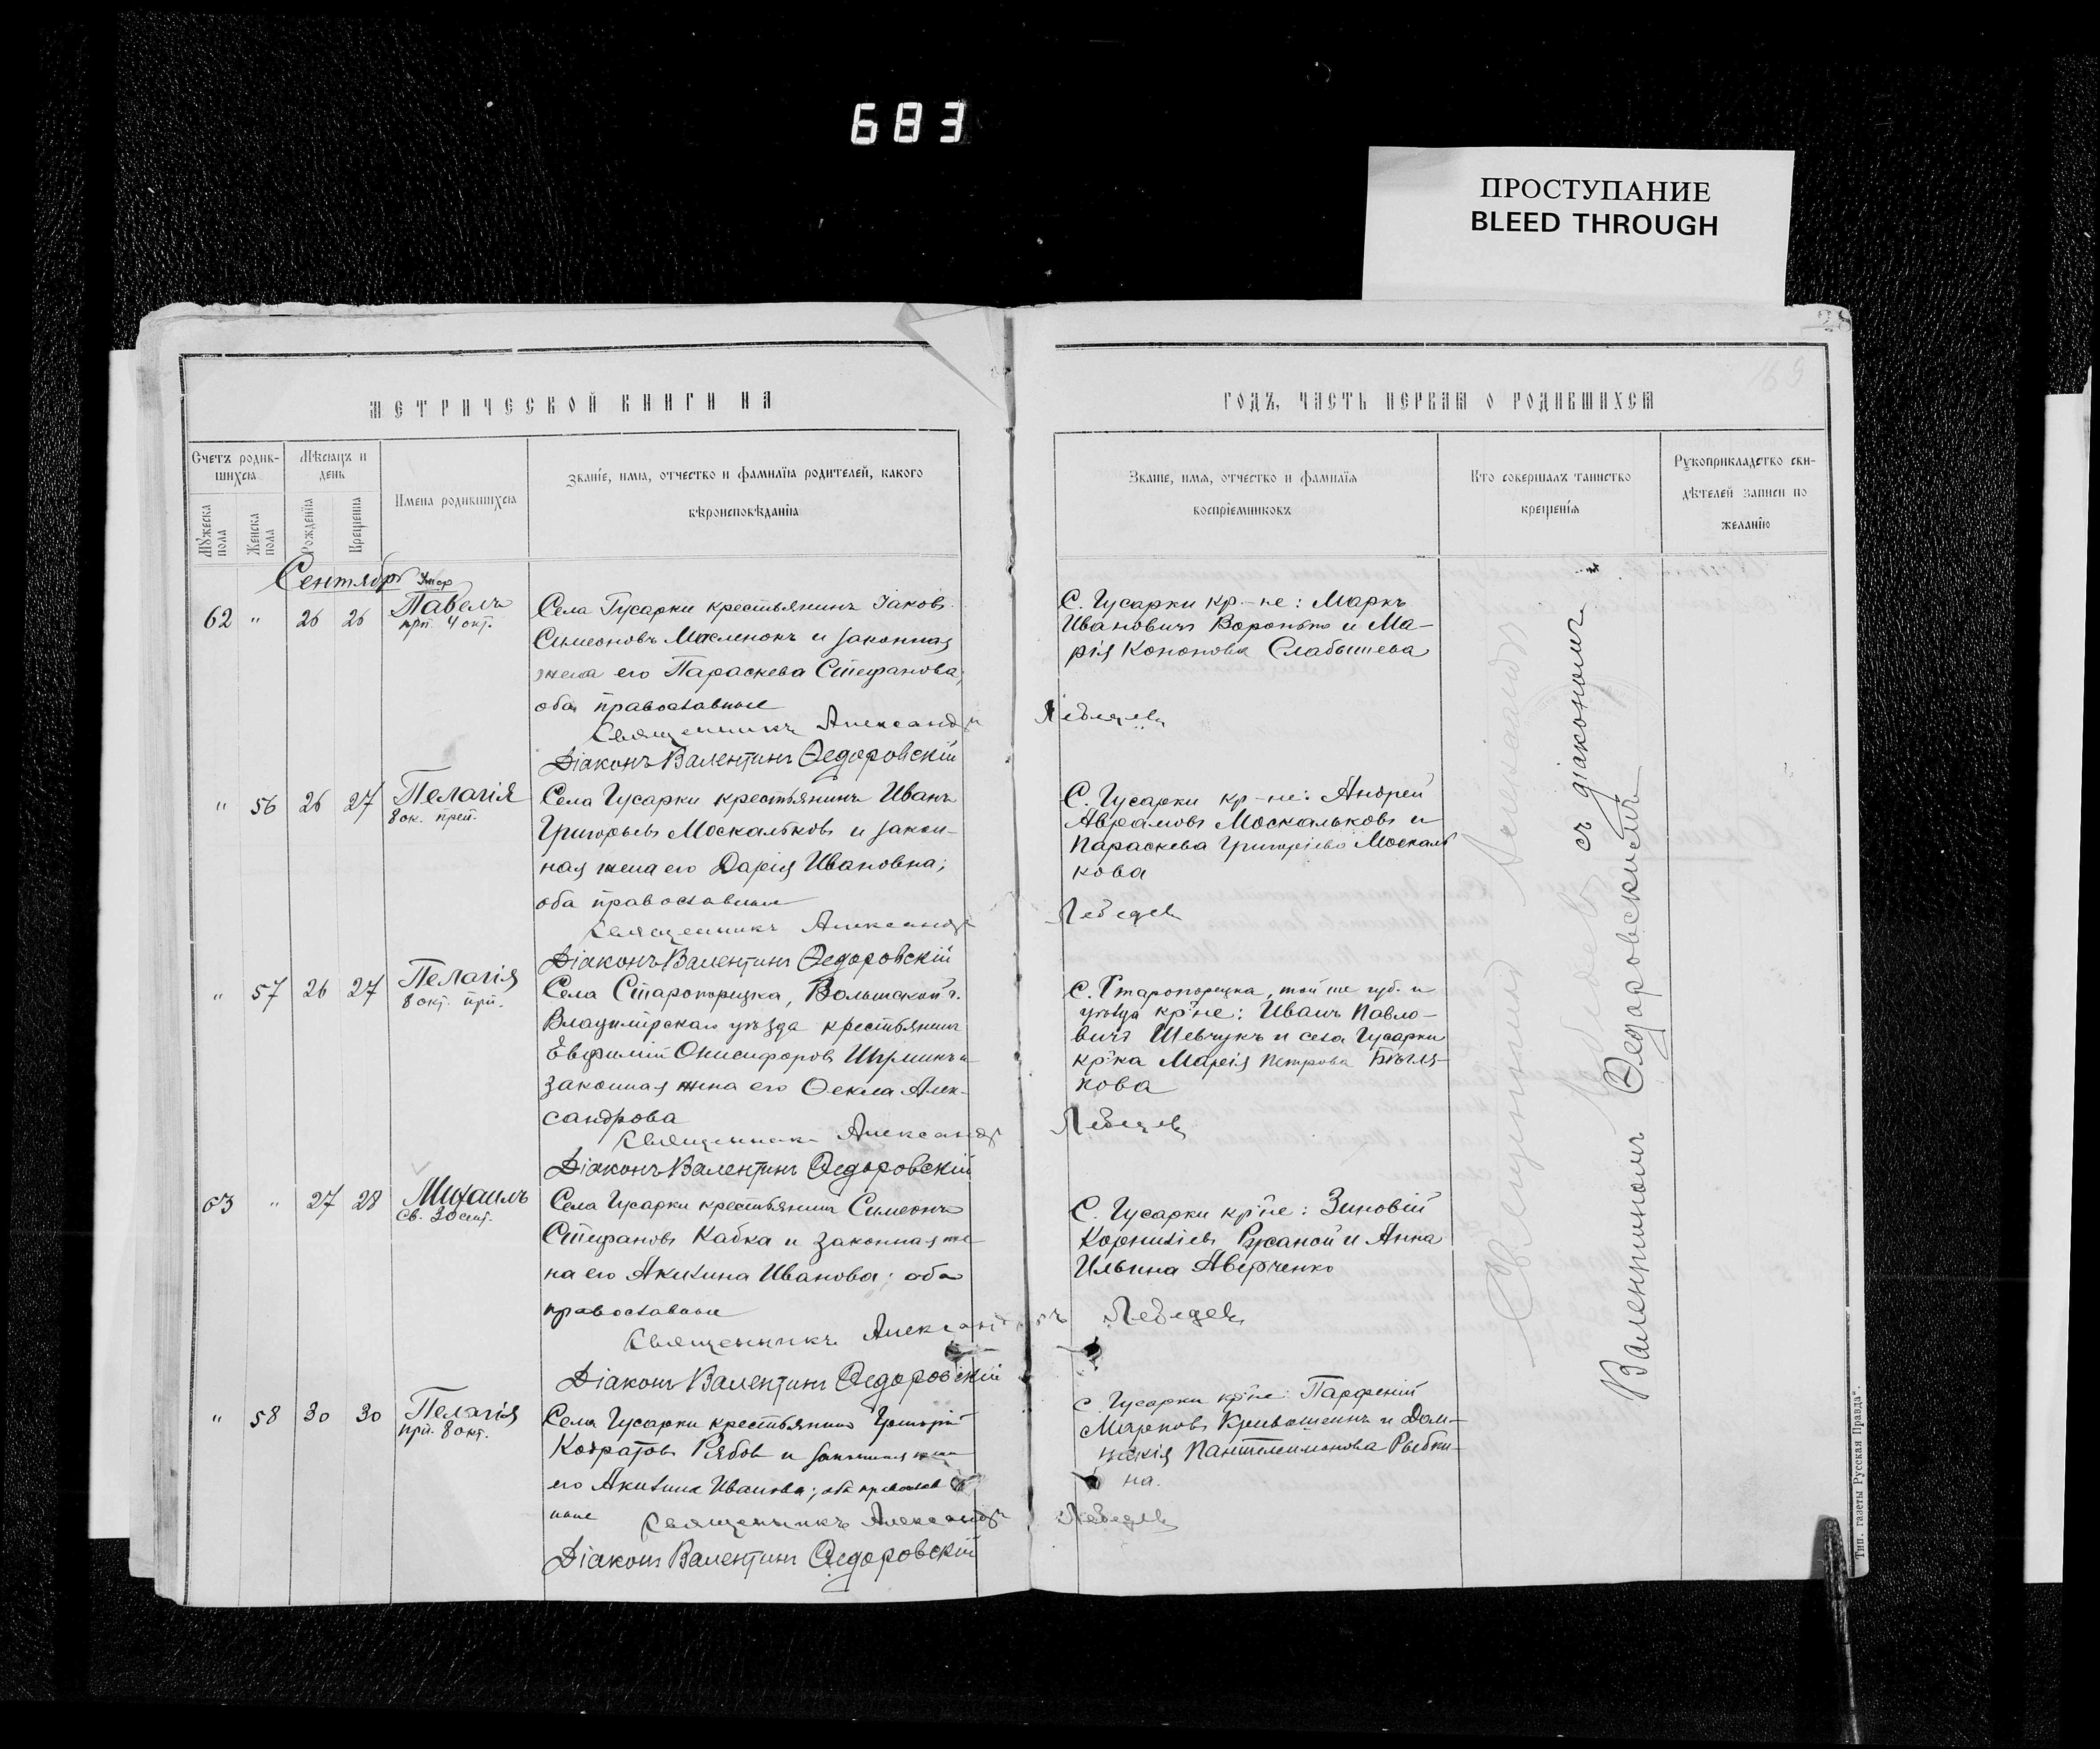 683
ПРОСТУПАНИЕ
BLEED THROUGH
28
169
МЕТРИЧЕСКОЙ КНИГИ НА
ГОДЪ, ЧАСТЬ ПЕРВАЯ О РОДИВШИХСЯ
Счетъ родив-
шихся
Мужеска пола
Женска пола
Мѣсяцъ и
день
Рожденїя
Крещенїя
Имена родившихся
Званїе, имя, отчество и фамилїя родителей, какого
вѣроисповѣданїя
Званїе, имя, отчество и фамилїя
воспрїемниковъ
Кто совершалъ таинство
крещенїя
Рукоприкладство сви-
дѣтелей записи по
желанїю
Сентябрь
умер
62 " 26 26 Павелъ
прп. 4 окт.
Села Гусарки крестьянинъ Іаковъ
Симеоновъ Масленокъ и законная
жена его Параскева Стефанова;
оба православные
Священникъ Александръ Лебедевъ
Діаконъ Валентинъ Ѳедоровскій
С. Гусарки кр-не: Маркъ
Ивановичъ Воронько и Ма-
рія Кононова Слабышева
" 56 26 27 Пелагія
8 ок. преп.
Села Гусарки крестьянинъ Иванъ
Григорьевъ Москальковъ и закон-
ная жена его Дарія Ивановна;
оба православные
Священникъ Александръ Лебедевъ
Діаконъ Валентинъ Ѳедоровскій
С. Гусарки кр-не: Андрей
Аврамовъ Москальковъ и
Параскева Григоріева Москаль
кова
" 57 26 27 Пелагія
8 окт. прп.
Села Старопорицка, Волынской г.
Владимірскаго уѣзда крестьянинъ
Евфимій Онисифоровъ и
законная жена его Ѳекла Алек-
сандрова
Священникъ Александръ Лебедевъ
Діаконъ Валентинъ Ѳедоровскій
С. Старопорицка, той же губ. и
уѣзда кр-не: Иванъ Павло-
вичъ Шевчукъ и села Гусарки
кр-ка Марія Петрова Бѣгля-
кова
63 " 27 28 Михаилъ
св. 30 сент.
Села Гусарки крестьянинъ Симеонъ
Стефановъ Кабка и законная же-
на его Акилина Иванова; оба
православные
Священникъ Александръ Лебедевъ
Діаконъ Валентинъ Ѳедоровскій
С. Гусарки кр-не: Зиновій
Корниліевъ Ржаной и Анна
Ильина Аверченко
" 58 30 30 Пелагія
прп. 8 окт.
Села Гусарки крестьянинъ Григорій
Кодратовъ Рябовъ и законная жена
его Акилина Иванова; оба православ
ные Священникъ Александръ Лебедевъ
Діаконъ Валентинъ Ѳедоровскій
с. Гусарки кр-не: Парфеній
Кривошеинъ и Дом-
никія Пантелеимонова Рыбки-
на.
Священникъ Александръ Лебедевъ
съ діакономъ
Валентиномъ Ѳедоровскимъ
Тип. газеты Русская Правда".